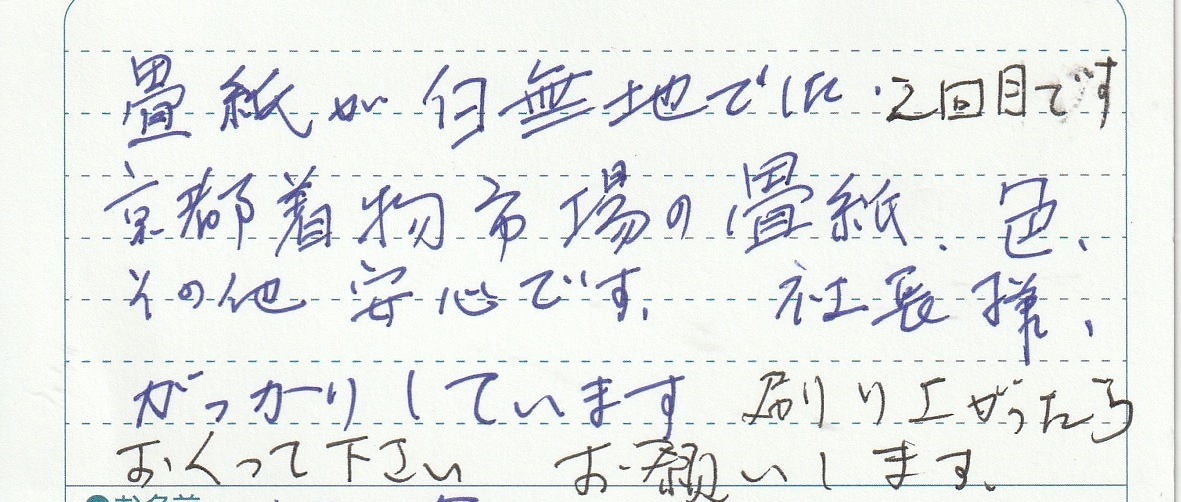 畳紙が白無地でした・2回目です
京都着物市場の畳紙、色、
その他 安心です。 社長様、
がっかりしています 刷り上がったら
おくって下さい お願いします。
お名前